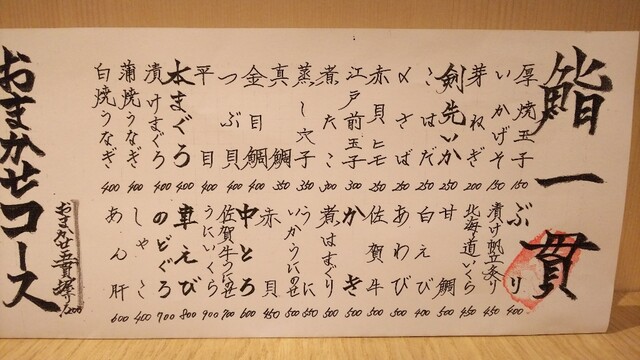 鮨一貫
厚焼玉子 150
いかげそ 150
芽ねぎ 200
剣先いか 250
こはだ 250
〆さば 250
赤貝ヒモ 250
江戸前玉子 300
煮たこ 300
蒸し穴子 350
真鯛 350
金目鯛 400
つぶ貝 400
平目 400
本まぐろ 400
漬けまぐろ 400
蒲焼うなぎ 400
白焼うなぎ 400
ぶり 400
漬け帆立炙り 450
北海道いくら 450
甘鯛 450
白えび 400
あわび 500
佐賀牛 500
かき 500
煮はまぐり 550
うに 500
いかうにのせ 500
赤貝 450
中とろ 600
佐賀牛うにのせ 700
うにいくら 900
車えび 800
のどぐろ 700
しゃこ 400
あん肝 600
おまかせコース
おまかせ五貫握り